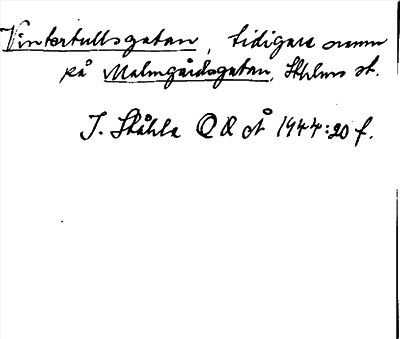 Vintertullsgatan, tidigare namn
på Malmgårdsgatan, Sthlms st.
J. Ståhle OoÅ 1944:20 f.